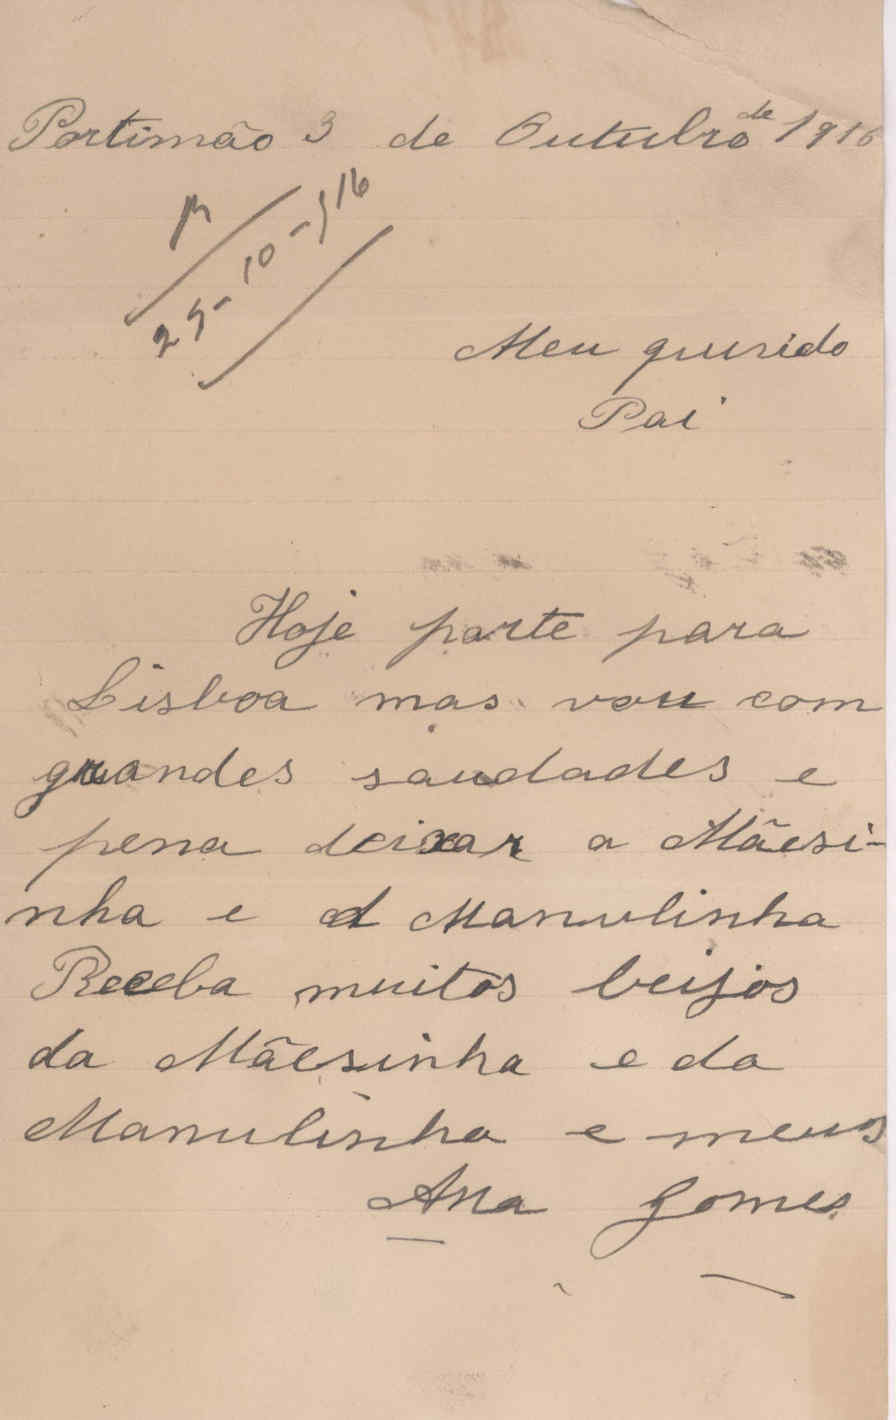 Portimão 3 de Outubro de 1916
25-10-916
Meu querido
Pai
Hoje parte para
Lisboa mas vou com
grandes saudades e
pena deixar a Mãesi-
nha e a Manulinha
Receba muitos beijos
da Mãesinha e da
Manulinha e meus
Ana Gomes